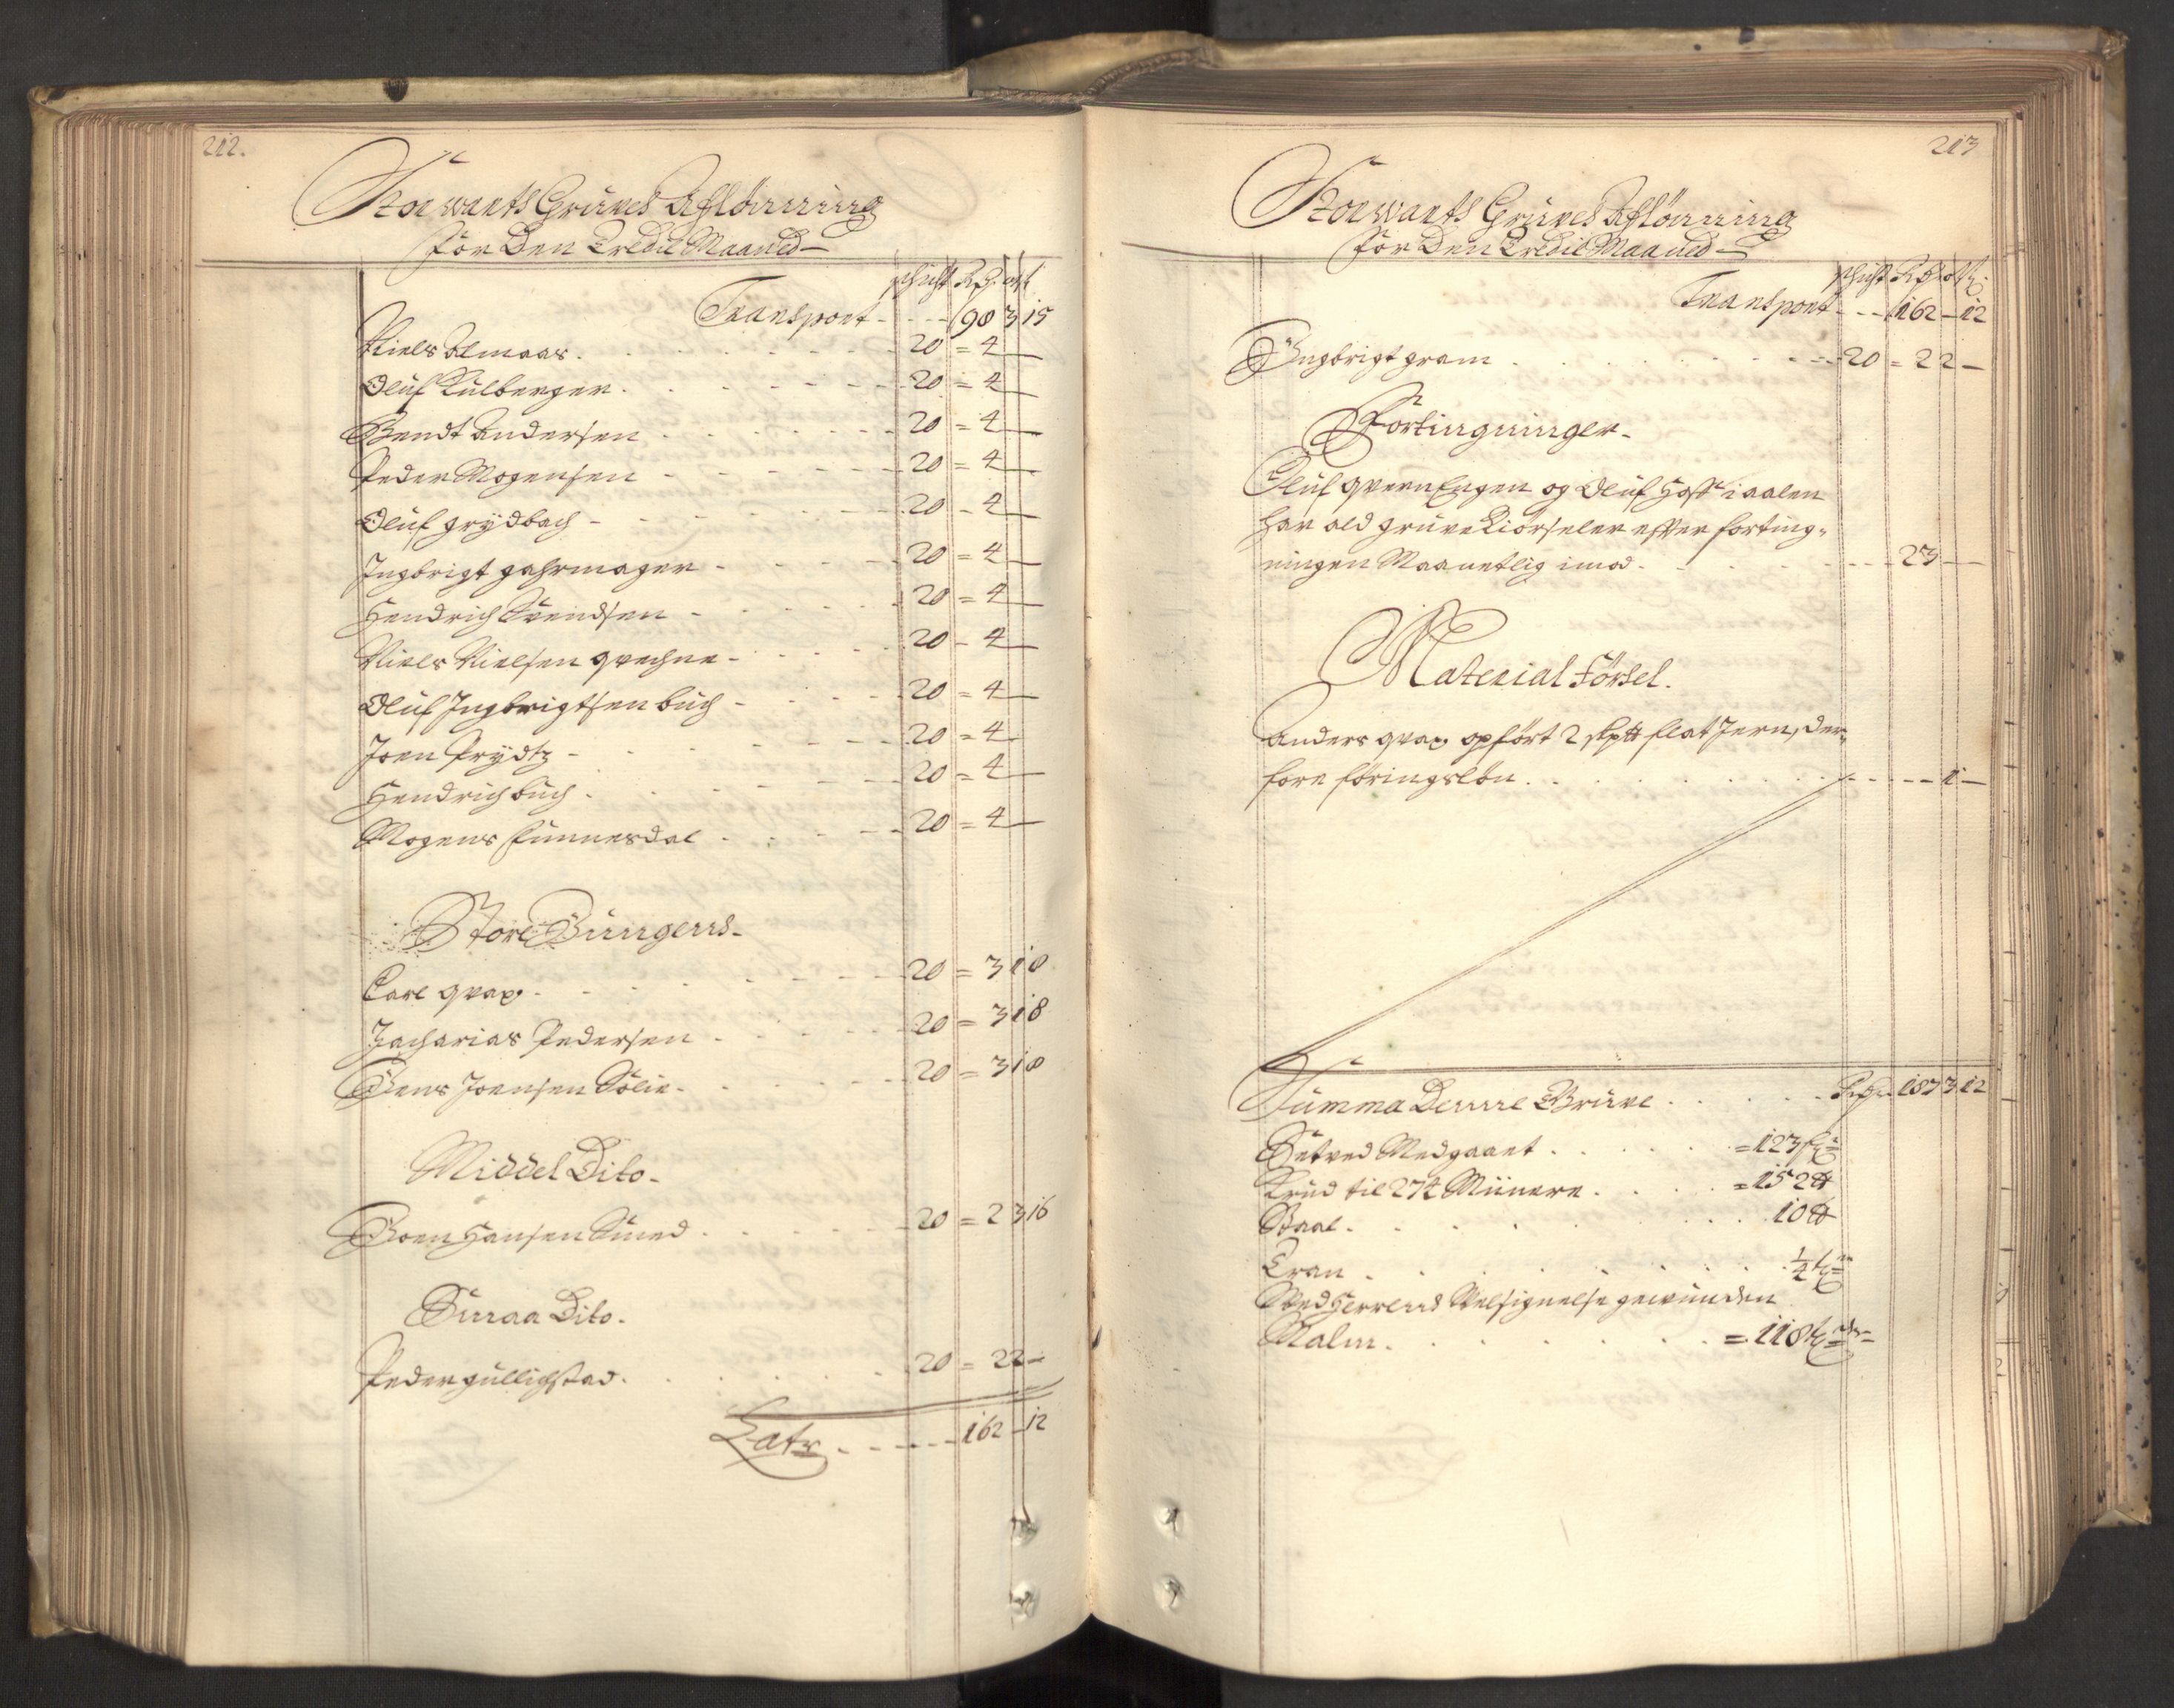 212.
Storwarts Gruves Aflönning
for Den Tredie Maaned
schicht Rdr. ort ß
Transport - - - 98 3 15
Niels Almaas - 20 = 4 —
Oluf Kulberger - 20 = 4 —
Bendt Andersen - 20 = 4 —
Peder Mogensen - 20 = 4 —
Oluf Grydbach - 20 - 4 —
Ingbrigt gahrmager - 20 = 4 —
Hendrich Svendsen - 20 = 4 —
Niels Nielsen qvechne - 20 - 4 —
Oluf Ingbrigtsen buch - 20 = 4 —
Joen Prydtz - 20 = 4
Hendrich buch - 20 = 4 —
Mogens Sunnesdal - 20 = 4 —
Store Jungens
Carl qvap - 20 = 3 1 8
Zacharias Pedersen - 20 = 3 1 8
Jens Joensen Sölie - 20 = 3 1 8
Middel Dito
Joen Hansen Smed - 20 = 2 3 16
Smaa Dito.
Peder gullichstad - 20 = 2 2 —
Latr - - - 162 - 12
213
Storwarts Gruves Aflönning
for Den Tredie Maaned
schicht Rdr ort ß
Transport - - - 162 - 12
Ingbrigt gram - 20 = 2 2 —
Fortingninger
Oluf qvernEngen og Oluf Hoff i aalen
har ald gruve Kiörseler efter forting-
ningen Maanetlig imod - 23 —
Material Försel.
Anders qvap opfört 2 skp flat Jern, der-
fore föringslön - 1 —
Summa Denne Gruve - Rdr 187 3 12
Setved Medgaaet - = 123 f
Krud til 274 Miinere - = 152 ℔
Staal - 10 ℔
Tran - ¼ t
Ved Herrens Velsignelse gewunden
Malm - = 118 t